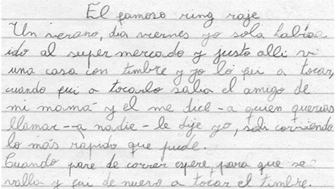 El famoso ring raje
Un verano, dia viernes yo sola habia
ido al super mercado y justo alli vi
una casa con timbre y yo lo fui a tocar
cuando fui a tocarlo salia el amigo de
mi mamá y el me dice - a quien querias
llamar - a nadie - le dije yo, sali corriendo
lo más rapido que pude.
Cuando pare de correr espere, para que se
valla y fui de nuevo a tocar el timbre.